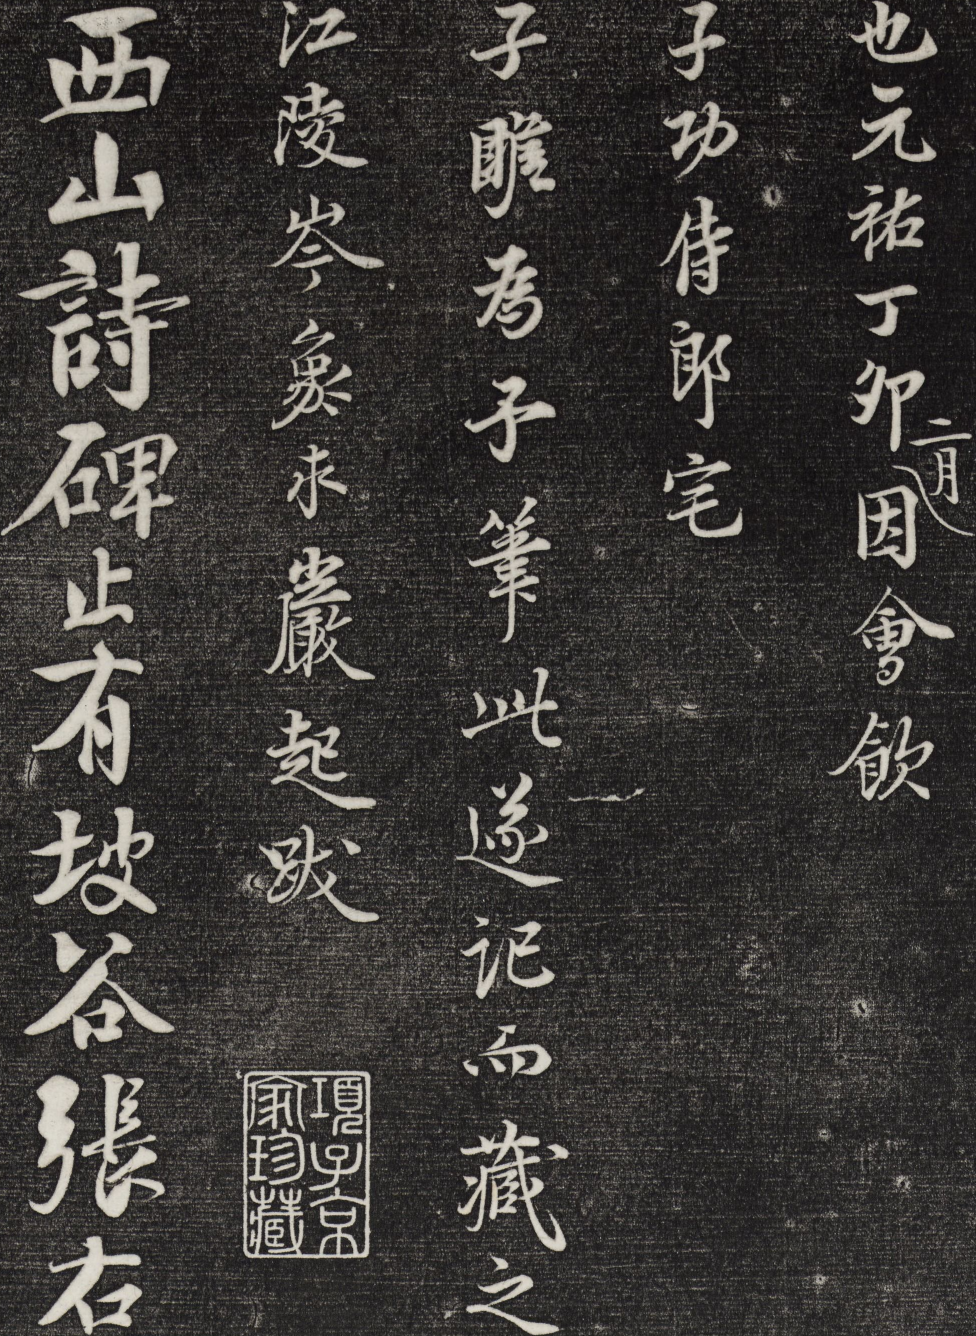 也元祐丁卯二月因會飲
子功侍郎宅
子睢為予筆此遂記而藏之
江陵岑象求巖起跋
項子京家珍藏
西山詩碑止有坡谷張右